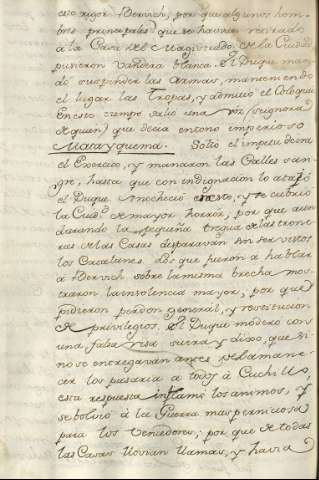 este rigor Bervich, por que algunos hom-
bres principales que se havian retirado
à la Casa del Magistrado de la Ciudad
pusieron vandera blanca. El Duque man
dó suspender las Armas, manteniendo
el lugar las Tropas, y admitió el Coloquio
En este tiempo salio una voz (se ignora
de quien) que decia en tono imperioso
Mata y quema. Soltó el impetu de ira
el Exercito, y manaron las Calles san-
gre, hasta que con indignacion lo atajó
el Duque. Anocheció en esto, y se cubrio
la Ciud.d de mayor horror, por que aun
durando la pequeña tregua de las trone-
ras de las Casas disparavan sin ser vistos
los Catalanes. Los que fueron à hablar
à Bervich sobre la misma brecha mos-
traron la insolencia mayor, por que
pidieron perdon general, y restitucion
de privilegios. El Duque moderó con
una falsa risa su ira y dixo, que si
no se entregavan antes del amane-
cer los pasaria a todos à Cuchillo,
esta respuesta inflamó los animos, y
se bolvió à la Guerra mas perniciosa
para los vencedores, por que de todas
las Casas llovian llamas, y havia